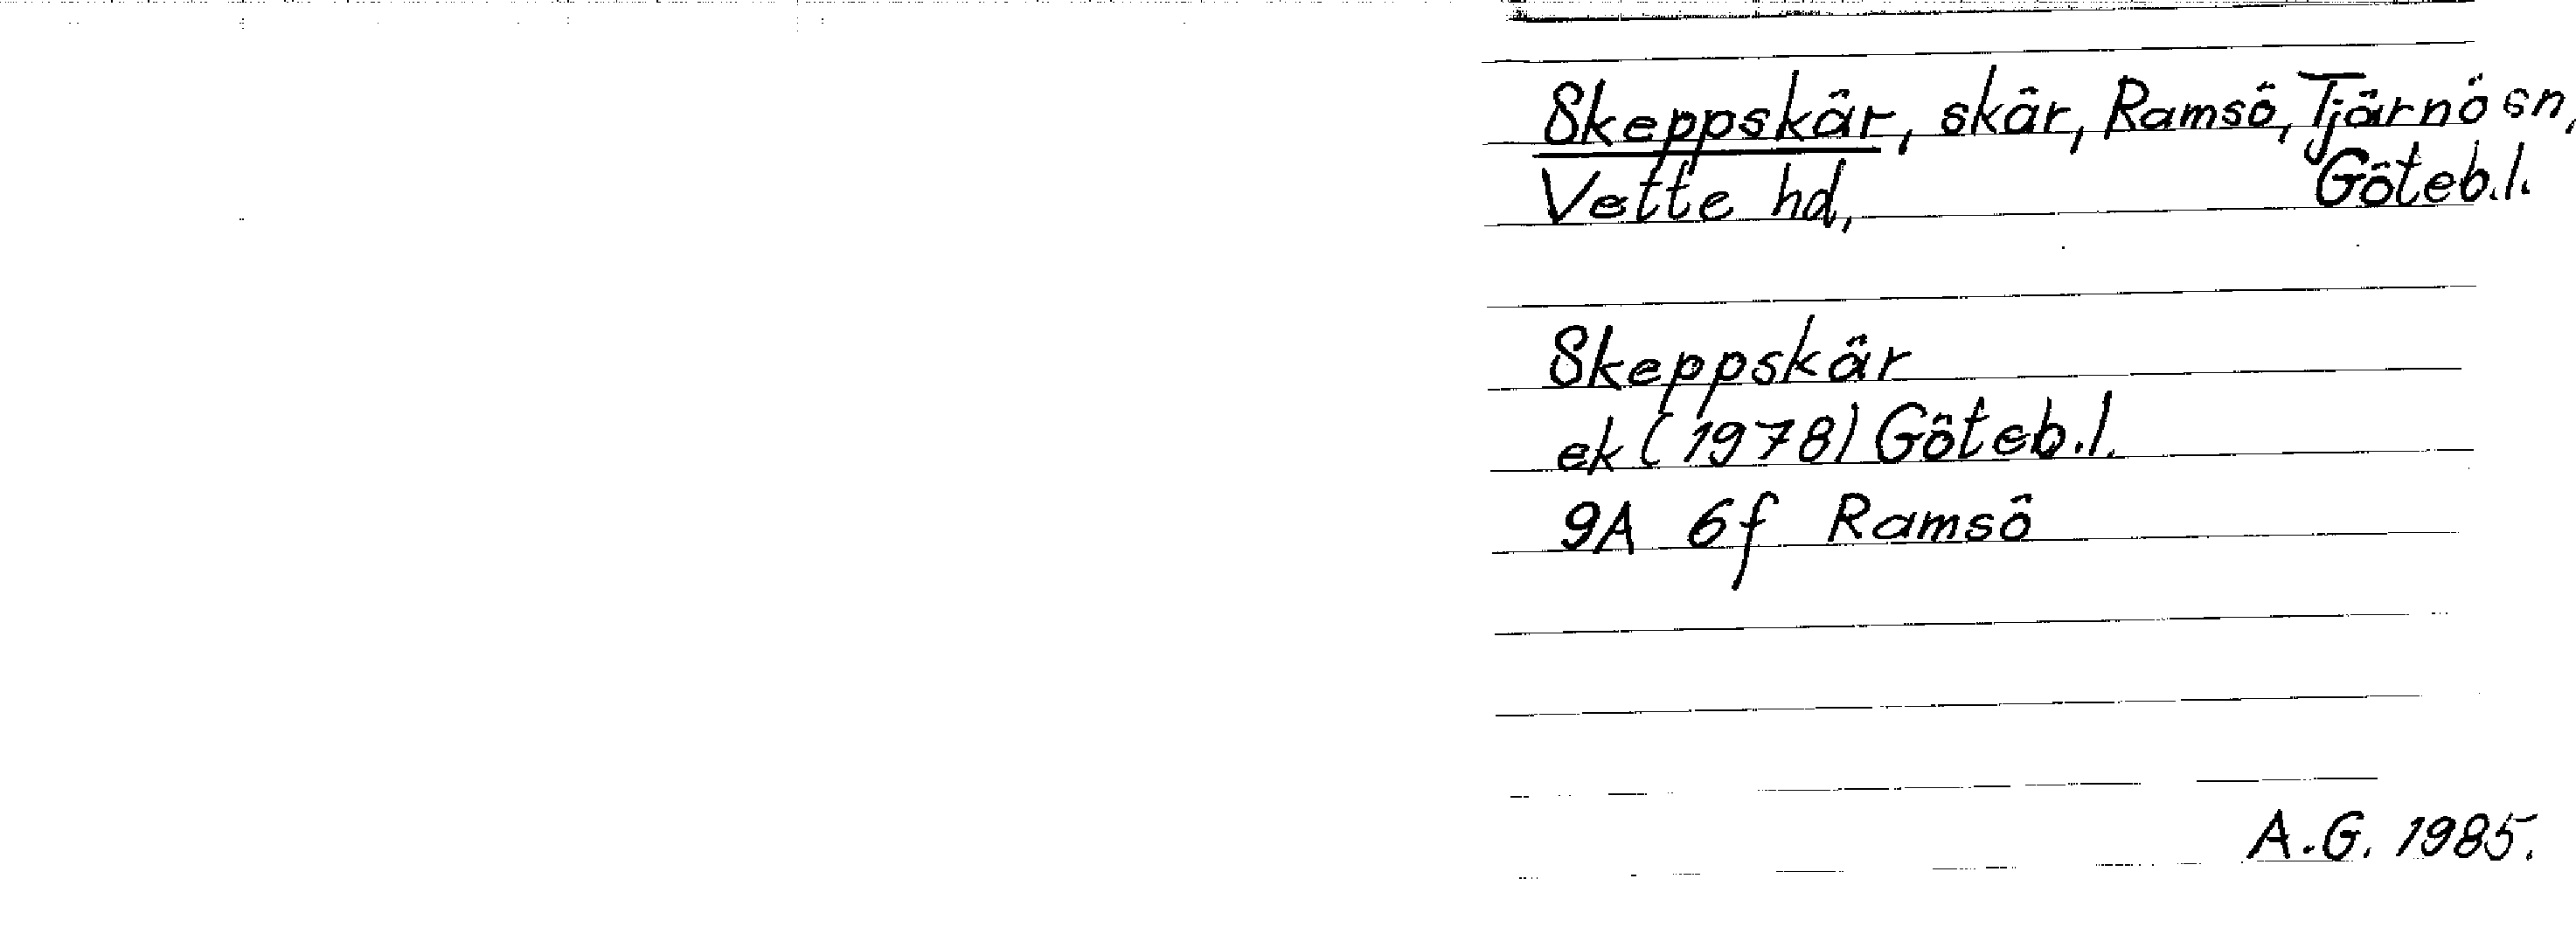 Skeppskär, skär, Ramsö, Tjärnö sn,
Vette hd, Göteb.l.
Skeppskär
ek (1978) Göteb.l.
9A 6f Ramsö
A.G. 1985.